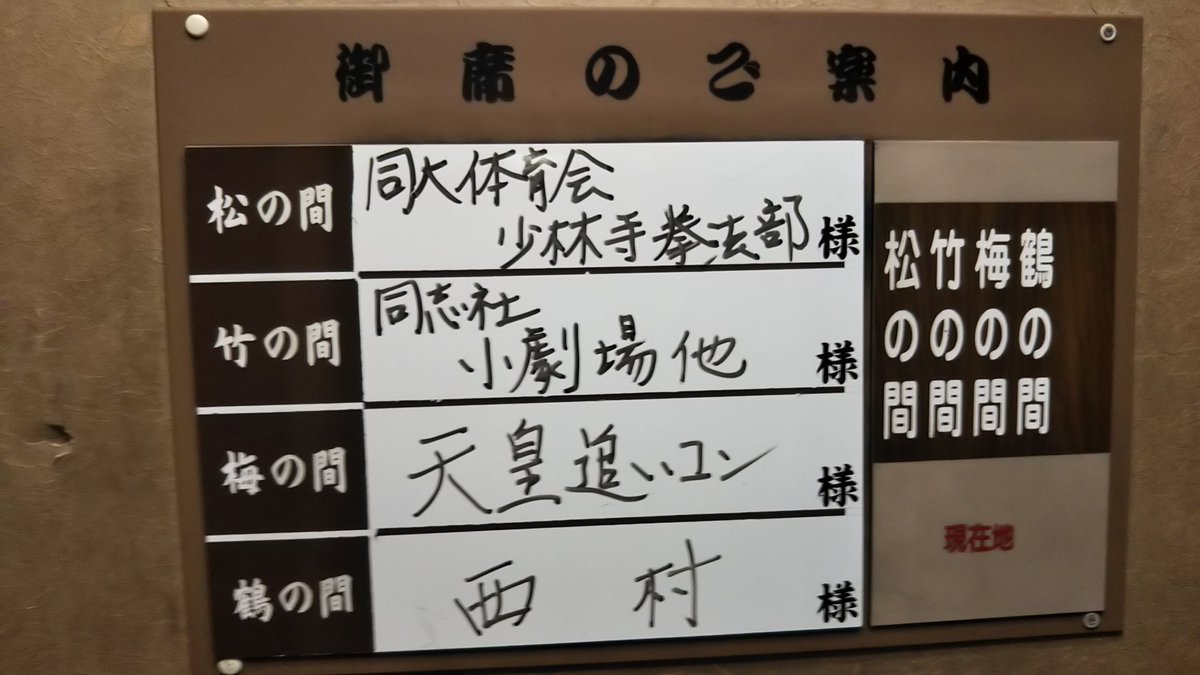 御席のご案内
松の間
同大体育会
少林寺拳法部様
竹の間
同志社
小劇場他様
梅の間
天皇追いコン様
鶴の間
西村様
鶴の間
梅の間
竹の間
松の間
現在地